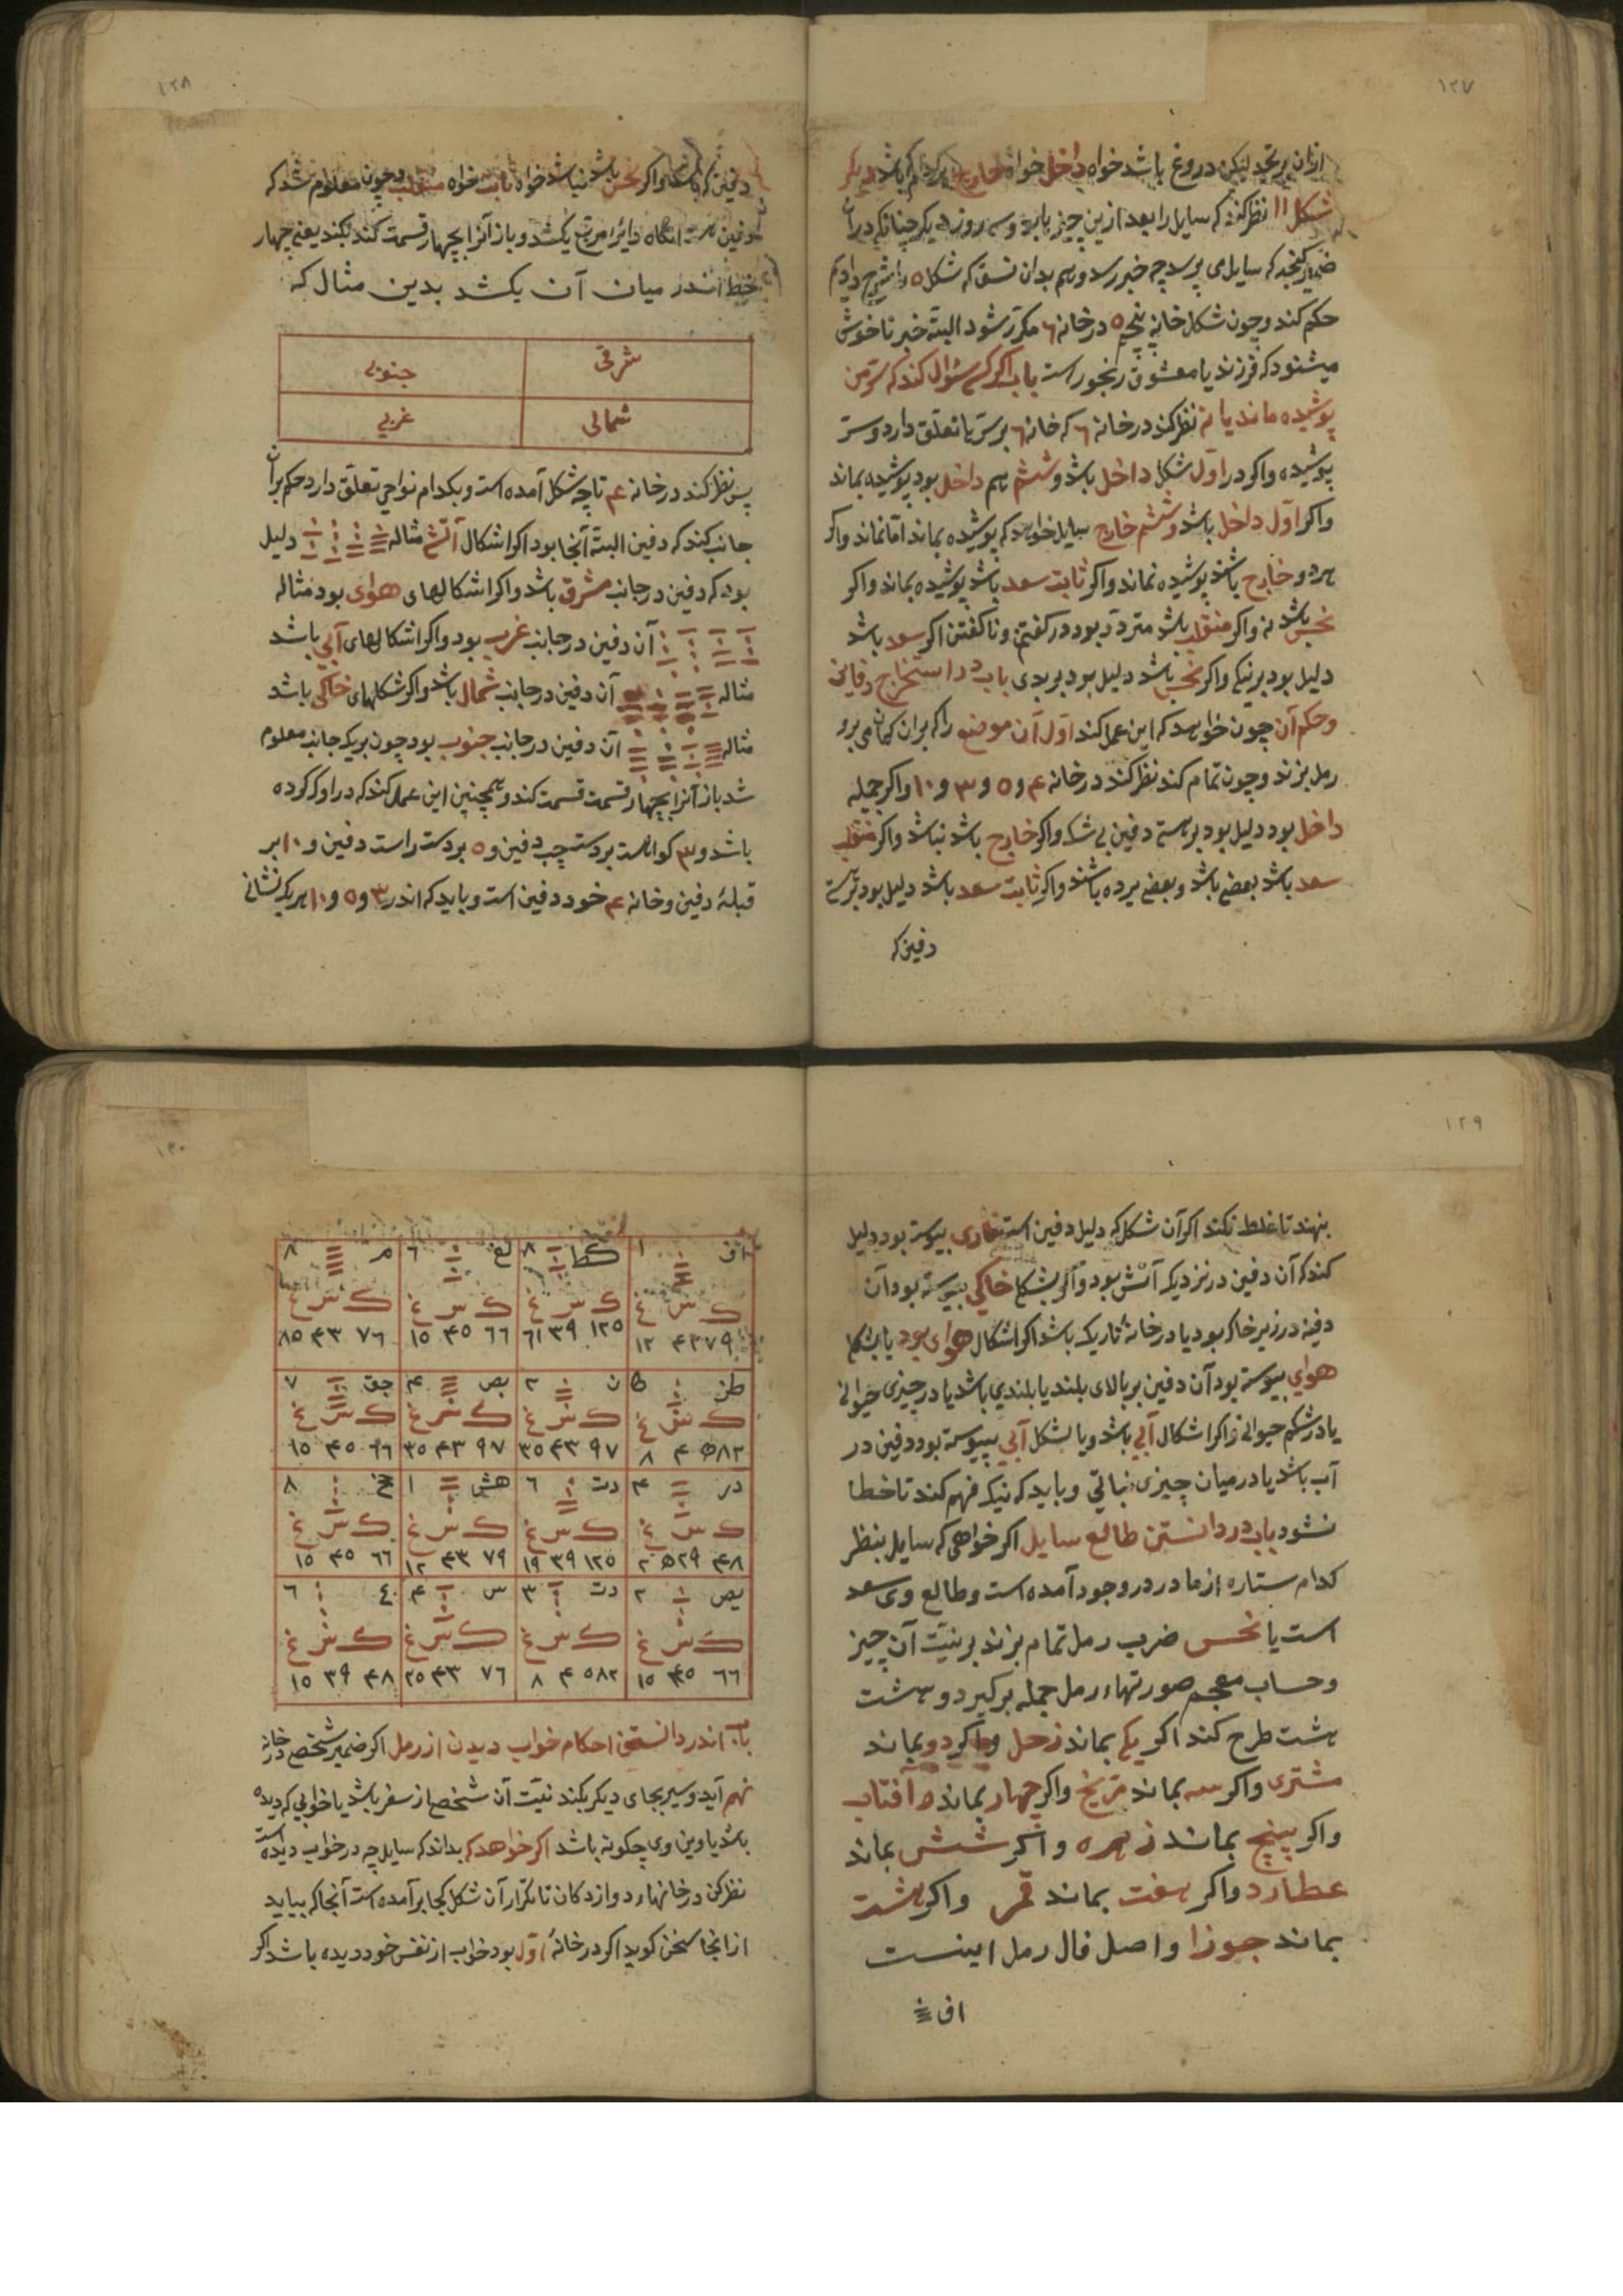 ١٢٧
ازان برنجد لیکن دروغ باشد خواه داخل خواه خارج باشد دیگر
شکل ١١ نظر کند که سایل را بعد ازین چیز یا بد و سه روز دیگر چنانکه در آن
ضمیر کنجد که سایل می پرسد چه خبر رسد و هم بدان نسق که شکل ٥ را شرح دادم
حکم کند و چون شکل خانهٔ پنجم ٥ در خانه ٦ مکرر شود البته خبر ناخوش
میشنود که فرزند یا معشوق رنجور است باب اگر کسی سؤال کند که سر من
پوشیده ماند یا نه نظر کند در خانه ٦ که خانه ٦ بر سر ما تعلق دارد و سر
پوشیده و اکر در اول شکل داخل باشد و ششم هم داخل بود پوشیده بماند
و اکر اول داخل باشد و ششم خارج سایل خواهد که پوشیده بماند اما نماند و اکر
هر دو خارج باشند پوشیده نماند و اکر ثابت سعد باشد پوشیده بماند و اکر
نحس باشد نه و اکر منقلب باشد متردد بود در کفتن و ناکفتن اکر سعد باشد
دلیل بود بر نیکی و اکر نحس باشد دلیل بود بر بدی باب در استخراج دفاین
و حکم آن چون خواهد که این عمل کند اول آن موضع را که بران کمان می برد
رمل بزند و چون تمام کند نظر کند در خانه ۴ و ٥ و ٣ و ١٠ و اکر جمله
داخل بود دلیل بود بر هستی دفین بی شک و اکر خارج باشد نباشد و اکر منقلب
سعد باشد بعضی باشد و بعضی برده باشند و اکر ثابت سعد باشد دلیل بود بر هستی
دفین که
١٢٨
دفین که باشد و اکر نحس باشد نباشد خواه ثابت خواه منقلب و چون معلوم شد که
دفین هست آنکاه دائرا مربع بکشد و باز آنرا بچهار قسمت کند بکند یعنی چهار
خط اندر میان آن بکشد بدین مثال که
شرقی جنوبی
شمالی غربی
پس نظر کند در خانه ۴ تا چه شکل آمده است و بکدام نواحی تعلق دارد حکم بر آن
جانب کند که دفین البته آنجا بود اکر اشکال آتشی مثاله دلیل
بود که دفین در جانب مشرق باشد و اکر اشکالهای هوای بود مثاله
آن دفین در جانب غرب بود و اکر اشکالهای آبی باشد
مثاله آن دفین در جانب شمال باشد و اکر شکلهای خاکی باشد
مثاله آن دفین در جانب جنوب بود چون بر یک جانب معلوم
شد باز آنرا بچهار قسمت قسمت کند و همچنین این عمل کند که در اول کرده
باشد و ٣ کواهست بر دست چپ دفین و ٥ بر دست راست دفین و ١٠ بر
قبلهٔ دفین و خانه ۴ خود دفین است و باید که اندر ٣ و ٥ و ١٠ هر یک نشانی
١٢٩
بنهند تا غلط نکند اکر آن شکل که دلیل دفین است ناری پیوسته بود دلیل
کند که آن دفین در نزدیک آتش بود و اکر بشکل خاکی پیوسته بود آن
دفینه در زیر خاک بود یا در خانهٔ تاریک باشد اکر اشکال هوای بود یا بشکل
هوای پیوسته بود آن دفین بر بالای بلند یا بلندی باشد یا در چیزی حیوانی
یا در شکم حیوانی و اکر اشکال آبی باشد و یا بشکل آبی پیوسته بود دفین در
آب باشد یا در میان چیزی نباتی و باید که نیک فهم کند تا خطا
نشود باب در دانستن طالع سایل اکر خواهی که سایل بنظر
کدام ستاره از مادر در وجود آمده است و طالع وی سعد
است یا نحس ضرب رمل تمام بزند بر نیت آن چیز
و حساب معجم صورتهاء رمل جمله برکیرد و هشت
هشت طرح کند اکر یکی بماند زحل و اکر دو بماند
مشتری و اکر سه بماند مریخ و اکر چهار بماند افتاب
و اکر پنج بماند زهره و اکر شش بماند
عطارد و اکر هفت بماند قمر و اکر هشت
بماند جوزا و اصل فال رمل اینست
اف
١٣٠
اف ١ کط ٨ لغ ٦ م ٨
ک س غ ک س غ ک س غ ک س غ
٧٩ ۴٣ ١٢ ١٢٥ ٣٩ ٦١ ٦٦ ۴٥ ١٥ ٧٦ ۴٣ ٨٥
طن ٥ ن ٢ بص ۴ جق ٧
ک س غ ک س غ ک س غ ک س غ
٥٨٢ ۴ ٨ ٩٧ ۴٣ ٣٥ ٩٧ ۴٣ ٣٥ ٦٦ ۴٥ ١٥
در ۴ دت ٦ هش ١ خ ٨
ک س غ ک س غ ک س غ ک س غ
۴٨ ٥٢٩ ٢ ١٢٥ ٣٩ ١٩ ٧٩ ۴٣ ١٢ ٦٦ ۴٥ ١٥
بص ٢ دت ٣ س ۴ ع ٦
ک س غ ک س غ ک س غ ک س غ
٦٦ ۴٥ ١٥ ٥٨٢ ۴ ٨ ٧٦ ۴٣ ٢٥ ۴٨ ٣٩ ١٥
باب اندر دانستن احکام خواب دیدن از رمل اکر ضمیر شخص در خانه
نهم آید و سیر بجای دیکر بکند نیت آن شخص از سفر باشد یا خوابی که دیده
باشد یا دین وی چکونه باشد اکر خواهد که بداند که سایل چه در خواب دیده است
نظر کن در خانهاء دوازدکان تا تکرار آن شکل کجا بر آمده است آنجا که بیاید
از آنجا سخن کوید اکر در خانهٔ اول بود خواب از نفس خود دیده باشد اکر